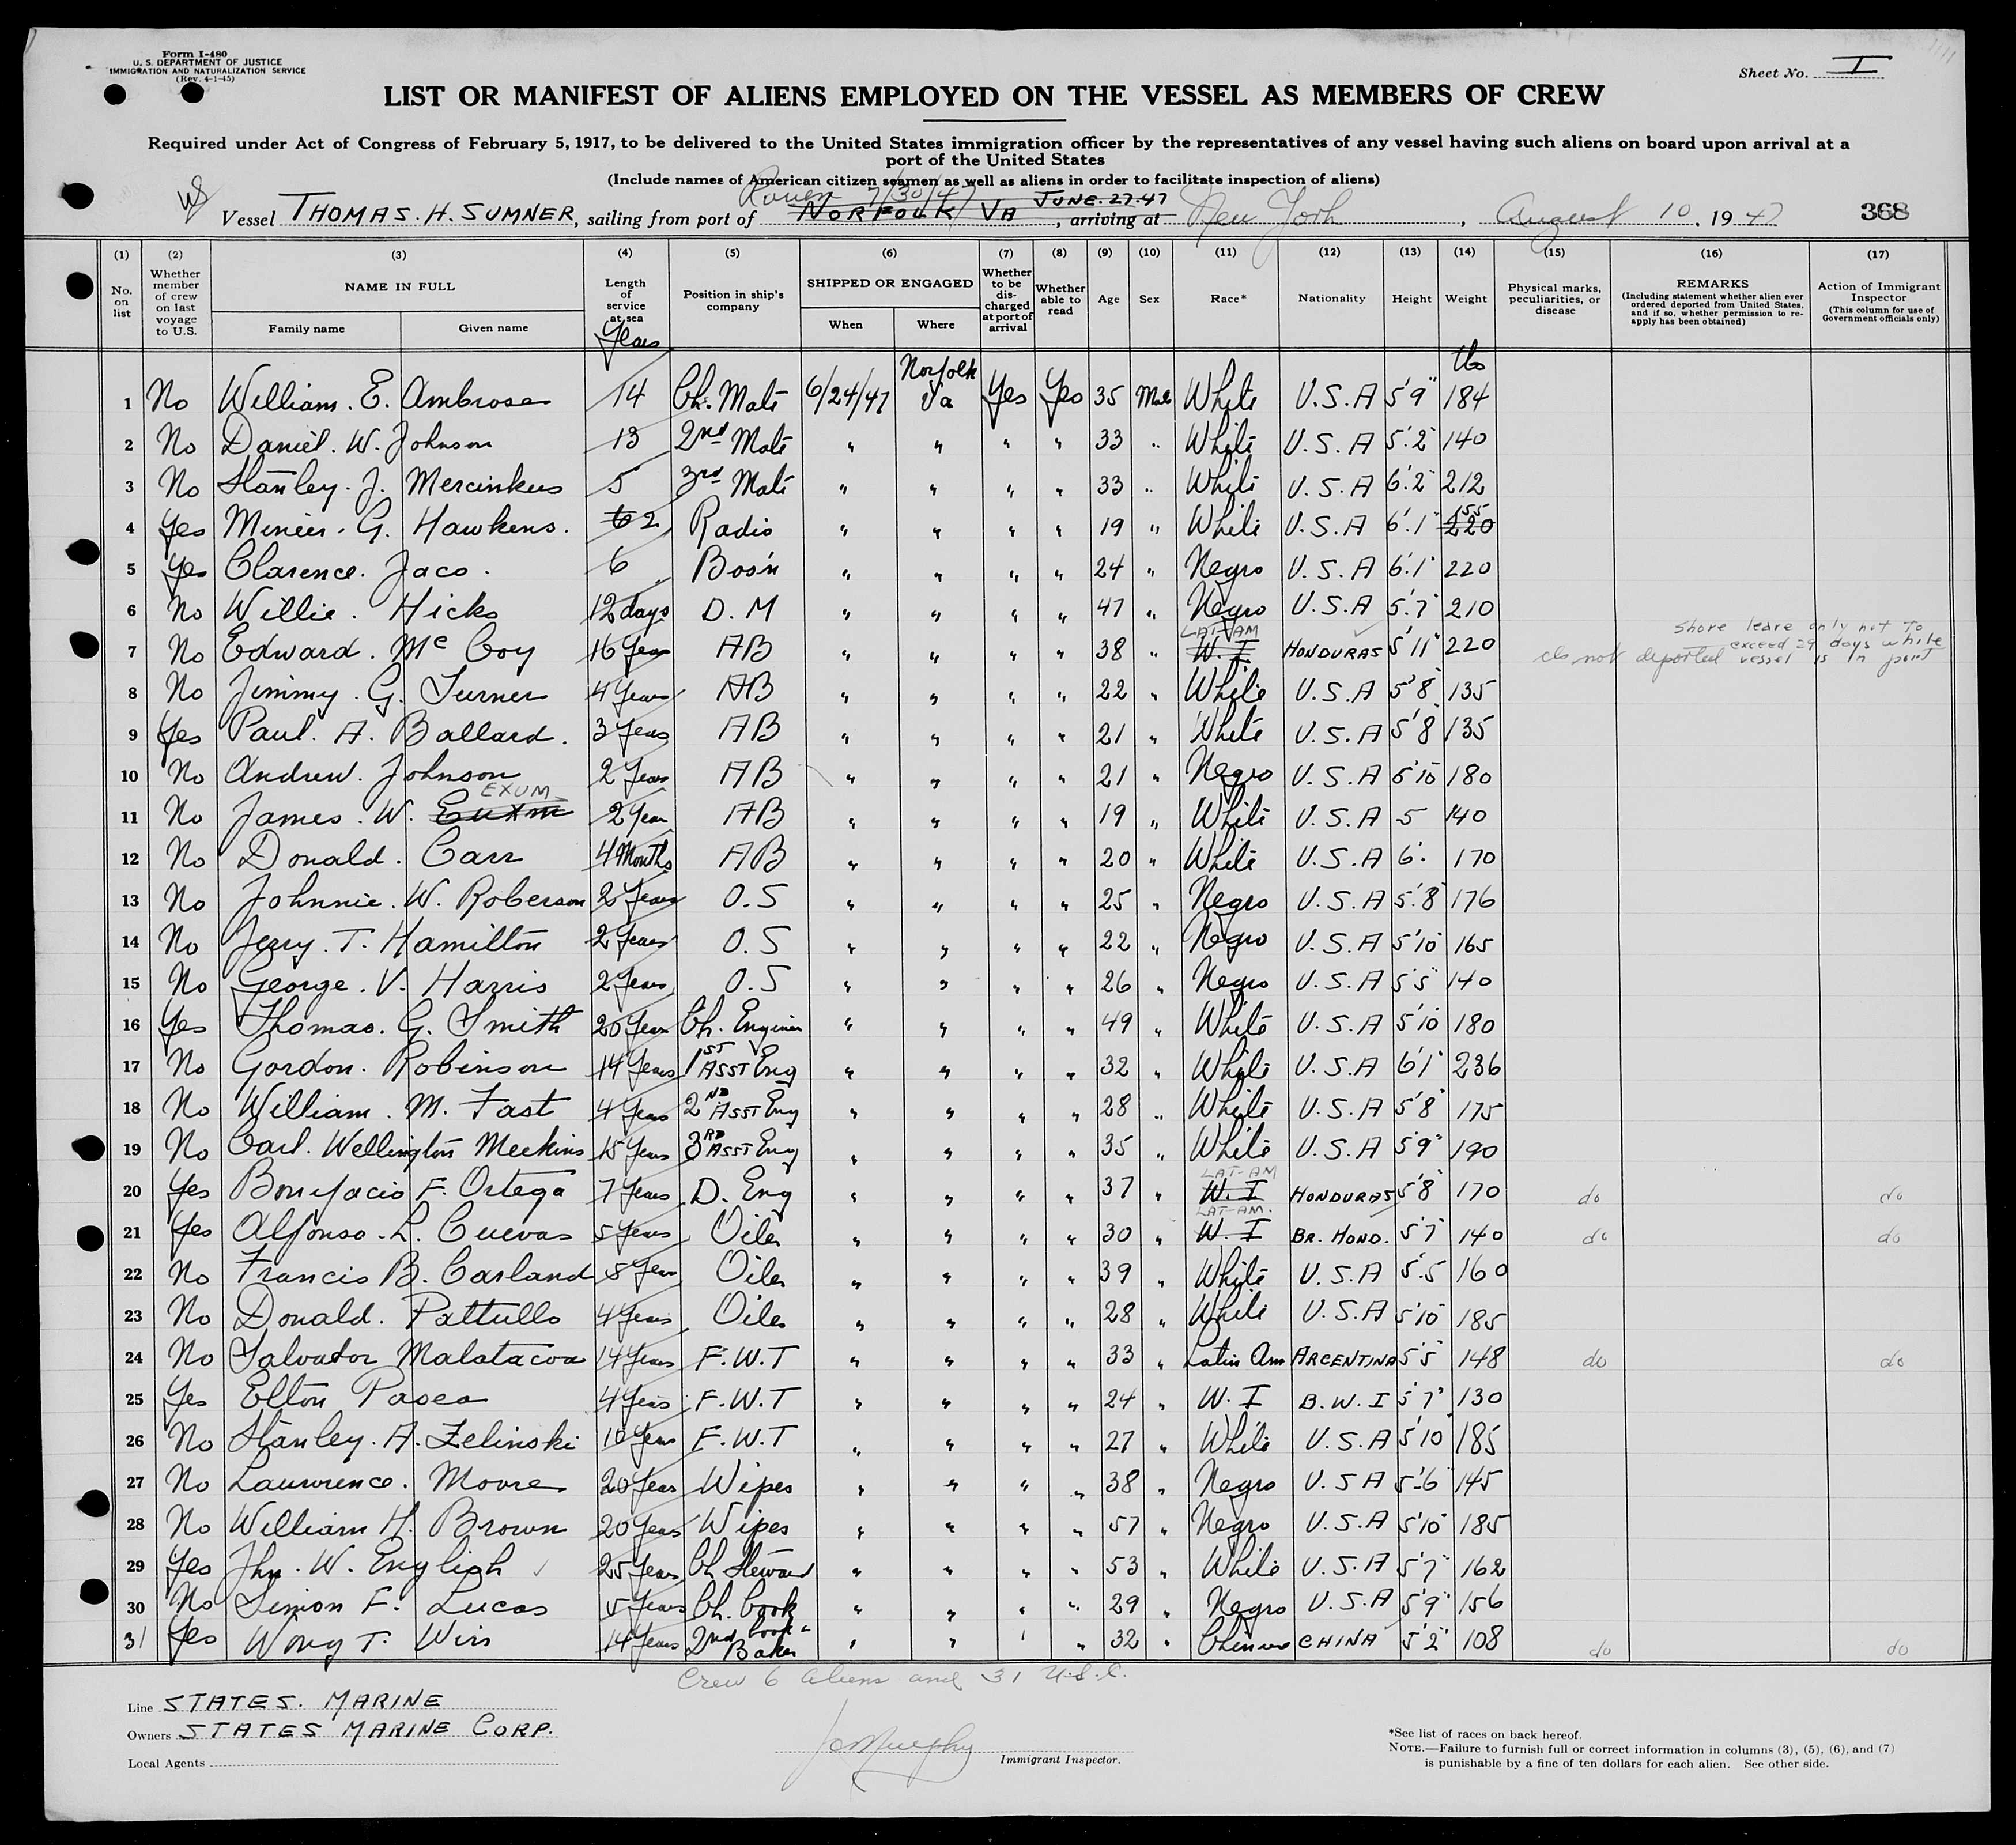 Form I-480
U. S. DEPARTMENT OF JUSTICE
IMMIGRATION AND NATURALIZATION SERVICE
(Rev. 4-1-45)
Sheet No. I
LIST OR MANIFEST OF ALIENS EMPLOYED ON THE VESSEL AS MEMBERS OF CREW
Required under Act of Congress of February 5, 1917, to be delivered to the United States immigration officer by the representatives of any vessel having such aliens on board upon arrival at a
port of the United States
(Include names of American citizen seamen as well as aliens in order to facilitate inspection of aliens)
Rouen 7/30/47
Vessel THOMAS. H. SUMNER, sailing from port of NORFOLK VA JUNE. 27. 47, arriving at New York, August 10, 1947 368
(1) (2) (3) (4) (5) (6) (7) (8) (9) (10) (11) (12) (13) (14) (15) (16) (17)
No. on list Whether member of crew on last voyage to U.S. NAME IN FULL Family name Given name Length of service at sea Position in ship's company SHIPPED OR ENGAGED When Where Whether to be discharged at port of arrival Whether able to read Age Sex Race* Nationality Height Weight Physical marks, peculiarities, or disease REMARKS (Including statement whether alien ever ordered deported from United States, and if so, whether permission to re-apply has been obtained) Action of Immigrant Inspector (This column for use of Government officials only)
Years
1 No William. E. Ambrose 14 Ch. Mate 6/24/47 Norfolk Va Yes Yes 35 Male White U.S.A 5'9" 184
2 No Daniel. W. Johnson 13 2nd Mate " " " " 33 " White U.S.A 5'.2" 140
3 No Stanley. J. Mercinkus 5 3rd Mate " " " " 33 " White U.S.A 6'.2" 212
4 Yes G. Hawkens. 2 Radio " " " " 19 " White U.S.A 6'.1" 220 155
5 Yes Clarence. Jaco. 6 Bos'n " " " " 24 " Negro U.S.A 6'.1" 220
6 No Willie. Hicks 12 days D. M " " " " 47 " Negro U.S.A 5'.7" 210
7 No Edward. Mc Coy 16 Years AB " " " " 38 " W. I LAT-AM HONDURAS 5'11" 220 not deported shore leave only not to exceed 29 days while vessel is in port
8 No Jimmy. G. Turner 4 Years AB " " " " 22 " White U.S.A 5'8" 135
9 Yes Paul. A. Ballard. 3 Years AB " " " " 21 " White U.S.A 5'8" 135
10 No Andrew. Johnson 2 Years AB " " " " 21 " Negro U.S.A 5'10" 180
11 No James. W. Euxm EXUM 2 Year AB " " " " 19 " White U.S.A 5 140
12 No Donald. Carr 4 Months AB " " " " 20 " White U.S.A 6'. 170
13 No Johnnie. W. Roberson 2 Years O.S " " " " 25 " Negro U.S.A 5'.8" 176
14 No Jerry. T. Hamilton 2 Years O.S " " " " 22 " Negro U.S.A 5'10" 165
15 No George. V. Harris 2 Years O.S " " " " 26 " Negro U.S.A 5'5" 140
16 Yes Thomas. G. Smith 20 Years Ch. Engineer " " " " 49 " White U.S.A 5'10 180
17 No Gordon. Robinson 14 Years 1ST ASST Eng " " " " 32 " White U.S.A 6'1" 236
18 No William. M. Fast 4 Years 2ND ASST Eng " " " " 28 " White U.S.A 5'8" 175
19 No Carl. Wellington Meekins 15 Years 3RD ASST Eng " " " " 35 " White U.S.A 5'9" 190
20 Yes Bonifacio F. Ortega 7 Years D. Eng " " " " 37 " W. I LAT-AM HONDURAS 5'8" 170 do do
21 Yes Alfonso. L. Cuevas 5 Years Oiler " " " " 30 " W. I LAT-AM. BR. HOND. 5'7" 140 do do
22 No Francis B. Carland 8 Years Oiler " " " " 39 " White U.S.A 5'.5 160
23 No Donald. Pattullo 4 Years Oiler " " " " 28 " White U.S.A 5'10" 185
24 No Salvador Malatacoa 14 Years F.W.T " " " " 33 " Latin Am ARGENTINA 5'5" 148 do do
25 Yes Elton Pasea 4 Years F.W.T " " " " 24 " W. I B.W.I 5'7" 130
26 No Stanley. A. Zelinski 10 Years F.W.T " " " " 27 " White U.S.A 5'10" 185
27 No Lauwrence. Moore 20 Years Wiper " " " " 38 " Negro U.S A 5'-6" 145
28 No William H. Brown 20 Years Wiper " " " " 57 " Negro U.S.A 5'10" 185
29 Yes Jhn. W. English 25 Years Ch Steward " " " " 53 " White U.S.A 5'7" 162
30 No Simon F. Lucas 5 Years Ch. Cook " " " " 29 " Negro U.S.A 5'9" 156
31 Yes Wong T. Win 14 Years 2nd Cook - Baker " " " " 32 " Chinese CHINA 5'2" 108 do do
Crew 6 aliens and 31 U.S.C.
Line STATES. MARINE
Owners STATES MARINE CORP.
Local Agents
Immigrant Inspector.
*See list of races on back hereof.
NOTE.—Failure to furnish full or correct information in columns (3), (5), (6), and (7)
is punishable by a fine of ten dollars for each alien. See other side.